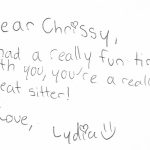 ear Chrissy,
had a really fun tim
th you, you're a really
eat sitter!
Love,
Lydia